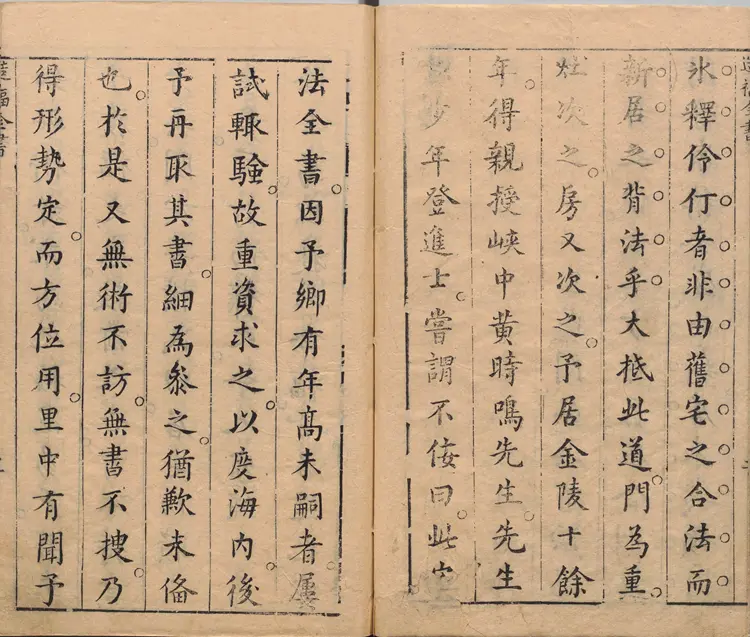 氷釋伶仃者非由舊宅之合法而
新居之背法乎大抵此道門為重
灶次之房又次之予居金陵十餘
年得親授峽中黄時鳴先生先生
少年登進士嘗謂不佞曰此
法全書因予鄉有年髙未嗣者屢
試輒驗故重資求之以度海內後
予再取其書細為叅之猶歉未偹
也於是又無術不訪無書不搜乃
得形勢定而方位用里中有聞予
全書